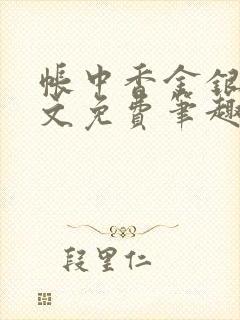 帐中香金银
文免费笔趣
段里仁